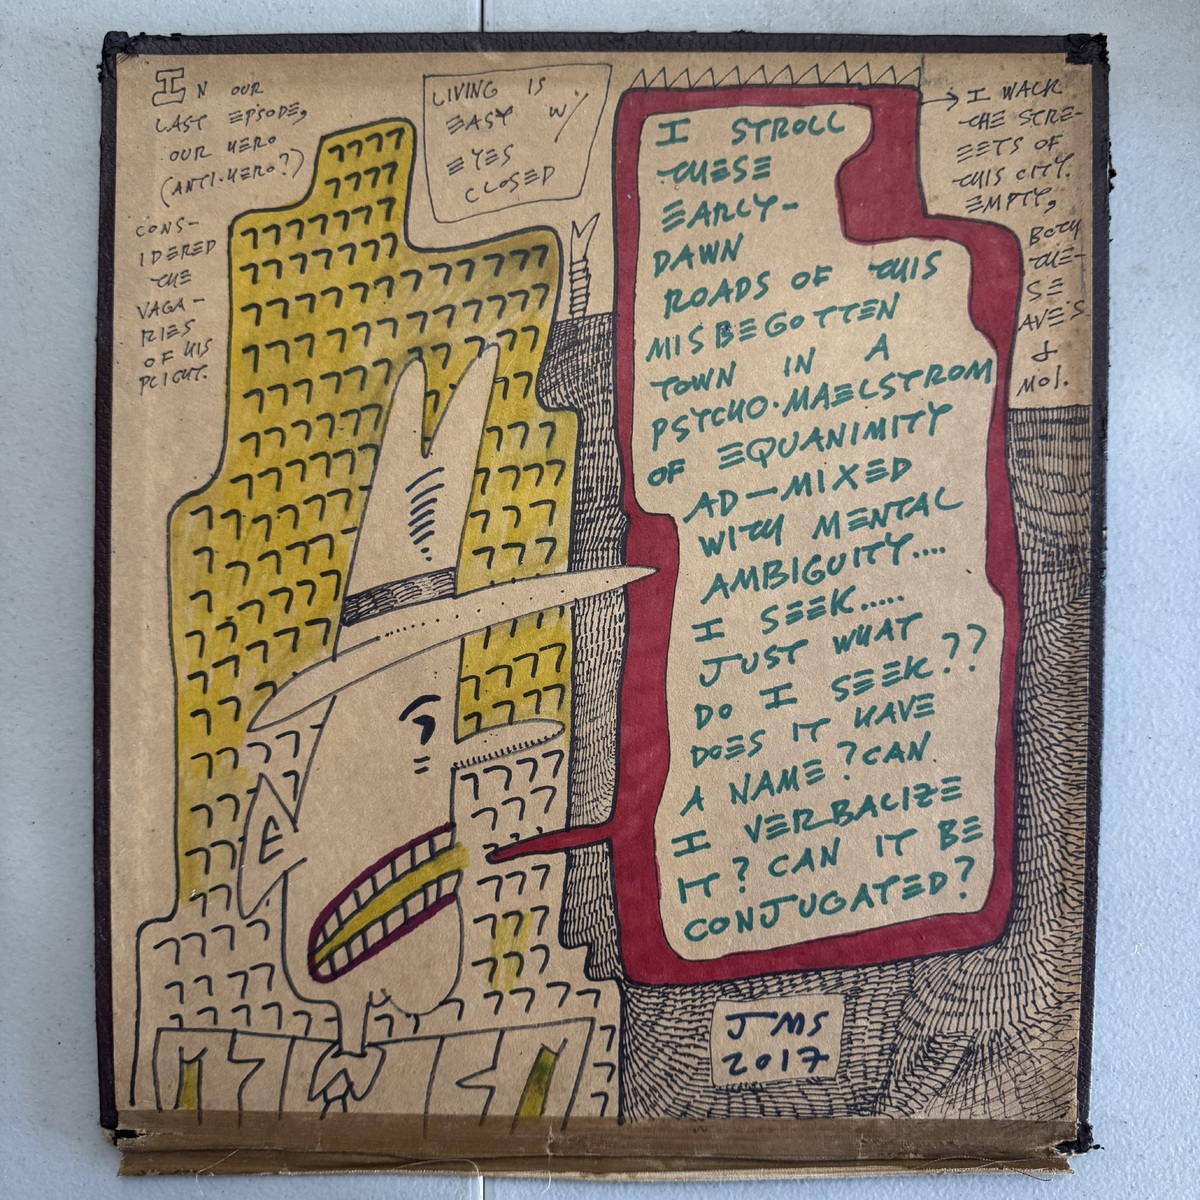 IN OUR
LAST EPSODE,
OUR HERO
(ANTI-HERO?)
CONS-
IDERED
THE
VAGA-
RIES
OF HIS
PLIGHT.
LIVING IS
EASY W/
EYES
CLOSED
I STROLL
THESE
EARLY-
DAWN
ROADS OF THIS
MISBEGOTTEN
TOWN IN A
PSYCHO-MAELSTROM
OF EQUANIMITY
AD-MIXED
WITH MENTAL
AMBIGUITY....
I SEEK.....
JUST WHAT
DO I SEEK??
DOES IT HAVE
A NAME? CAN
I VERBALIZE
IT? CAN IT BE
CONJUGATED?
I WALK
THE STRE-
EETS OF
THIS CITY.
EMPTY,
BOTH
THE-
SE
AVE'S
&
MOI.
JMS
2017